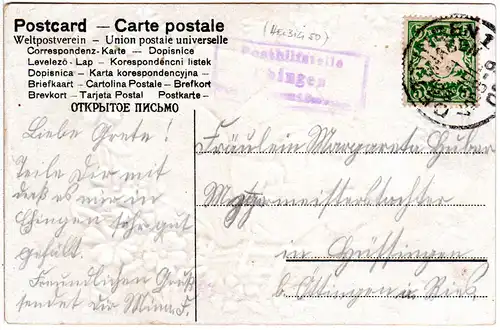 Postcard — Carte postale
Weltpostverein — Union postale universelle
Correspondenz-Karte — Dopisnice
Levelező-Lap — Korespondencni listek
Dopisnica — Karta korespondencyjna —
Briefkaart — Cartolina Postale — Brefkort
Brevkort — Tarjeta Postal Postkarte —
ОТКРЫТОЕ ПИСЬМО
(HELBIG 50)
Posthilfstelle
Ehingen
Liebe Grete!
Teile Dir mit
daß es mir in
Ehingen sehr gut
gefällt.
Freundlichen Gruß
sendet dir Minna F.
Fräulein Margareta Huber
Metzgermeisterstochter
in Hüssingen
b. Öttingen a. Ries